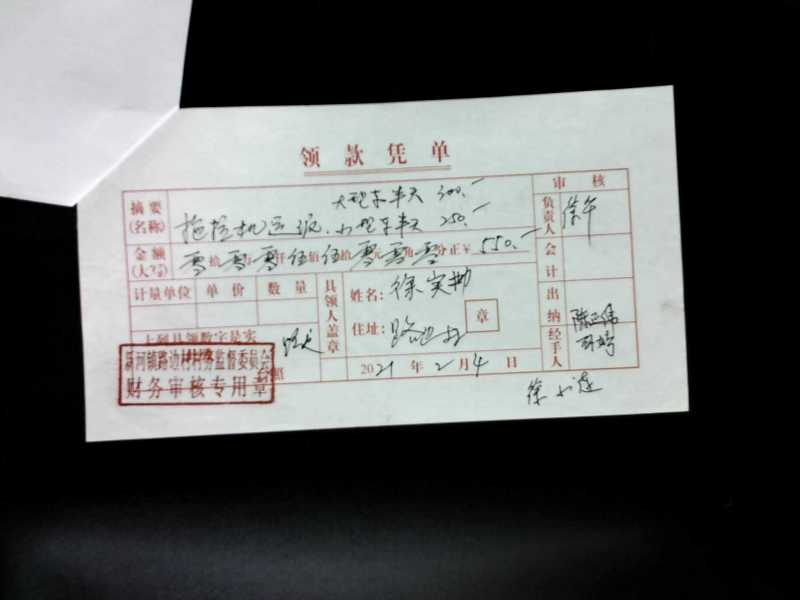 领款凭单
审核
摘要(名称)
大型车半天 300.-
拖拉机运垃 小型车半天 250.-
负责人
金额(大写) 零拾零万零仟伍佰伍拾零元零角零分正￥550.-
会计
计量单位 单价 数量
具领人盖章
姓名: 徐实
住址: 路边村
章
出纳
上列具领数字是实
经手人
新河镇路边村村务监督委员会
财务审核专用章
2021年2月4日
徐小